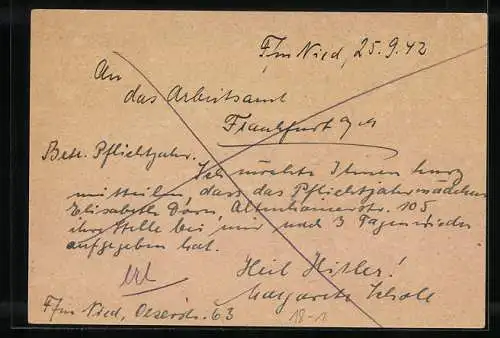 F/m Nied, 25.9.42
An
das Arbeitsamt
Frankfurt a/M
Betr. Pflichtjahr.
Ich möchte Ihnen kurz
mitteilen dass das Pflichtjahrmädchen
Elisabeth Dörn, Altenhainerstr. 105
ihre Stelle bei mir nach 3 Tagen wieder
aufgegeben hat.
Heil Hitler!
Margarete Scholl
F/m Nied, Oeserstr. 63
18-1